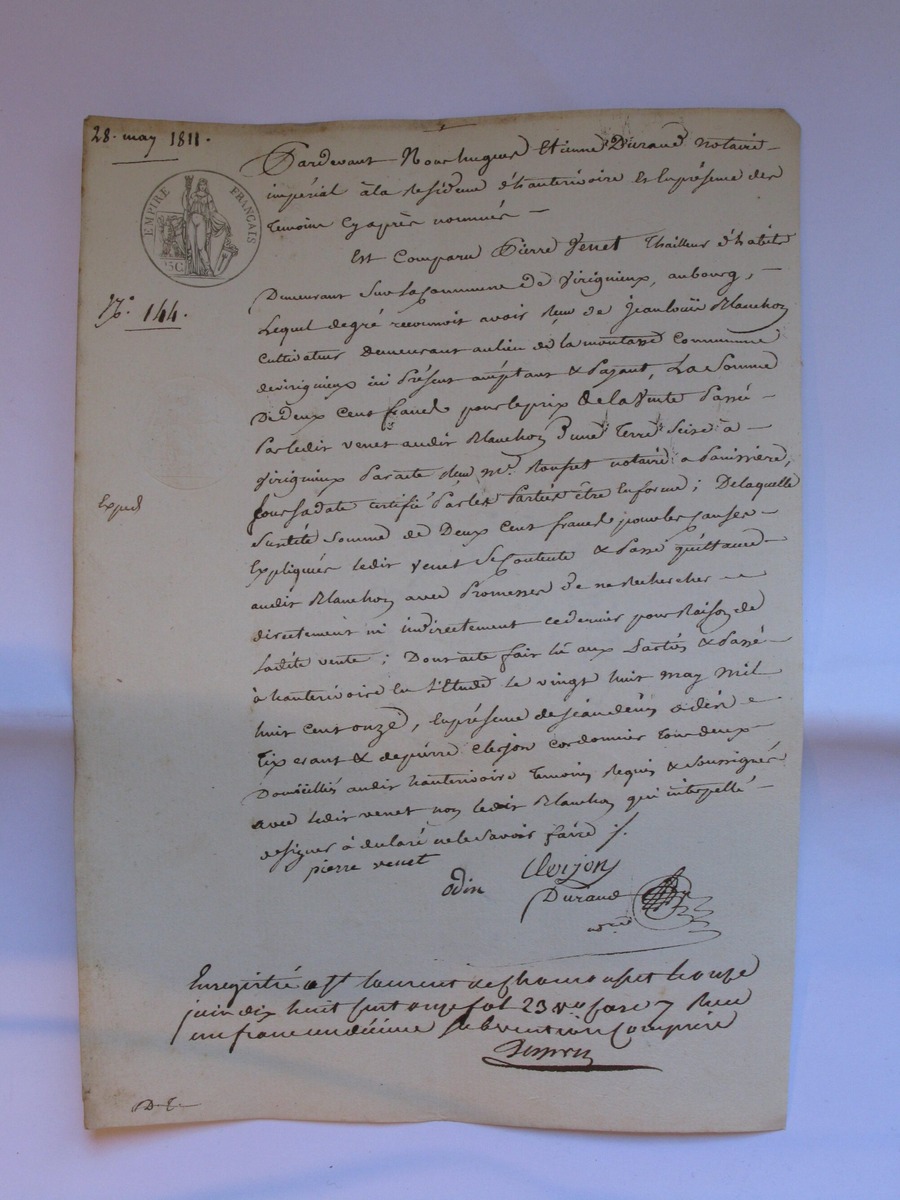 28. may 1811.
EMPIRE FRANÇAIS
N.º 144.
Expéd
Pardevant Nous hugues Etienne Durand notaire
impérial à la Residence d'hauterivoire et En présence des
temoins Cyaprès nommés —
Est Comparu Pierre Venet thailleur d'habits
Demeurant Sur la Commune de Virigneux, au bourg, —
Lequel de gré reconnoit avoir Reçu de Jean louis Blanchon
cultivateur demeurant au lieu de la Commune
de virigneux ici Présent acceptant & Payant, La Somme
De deux Cent francs pour le prix de la Vente Passé —
Par ledit venet audit Blanchon d'une Terre Scise à —
Virigneux Par acte Reçu m.e notaire a Panissière,
pour sa date certifié Par les Parties être En forme ; De laquelle
Susdite Somme de Deux Cent francs pour les Causes —
Expliquées ledit Venet Se Contente & Passe quittance
audit Blanchon avec Promesse de ne Rechercher —
directement ni indirectement ce dernier pour Raison de
ladite vente ; Dont acte fait lû aux Parties & Passé —
à hauterivoire En l'Etude le vingt huit may Mil
huit Cent onze, En présence de Jean odin
Tixerant & de pierre Clerjon Cordonnier tous deux
Domiciliés audit hauterivoire temoins Requis & Soussignés
avec ledit venet non ledit Blanchon qui interpellé —
de signer à déclaré ne le Savoir faire ./.
pierre venet
odin
Clerjon
Durand
Enregistré a St laurent de Chamousset le onze
juin dix huit cent onze fol 23 vo case 7 Reçu
un franc un décime Subvention Comprise
D. E.